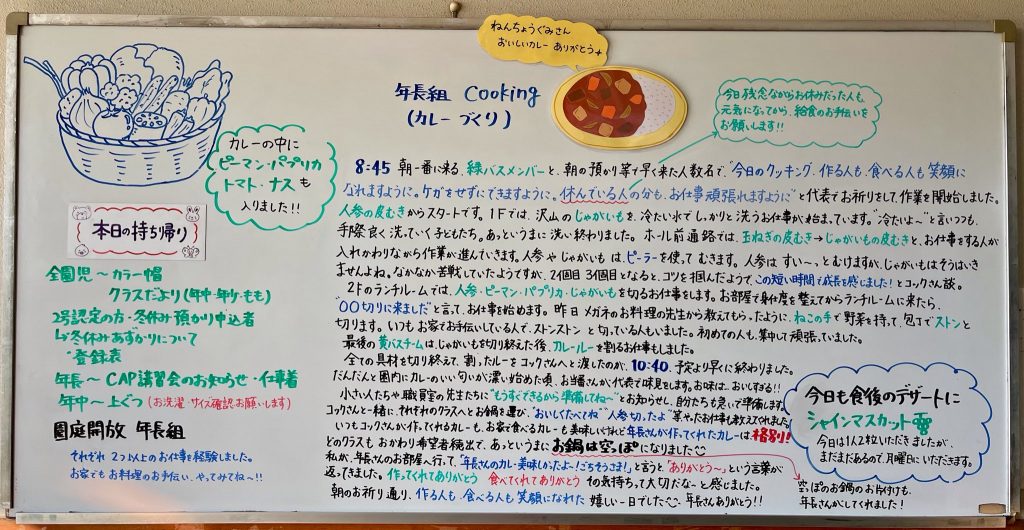 ねんちょうぐみさん
おいしいカレー ありがとう
年長組 Cooking
(カレーづくり)
今日残念ながらお休みだった人も、
元気になってから、給食のお手伝いを
お願いします!!
カレーの中に
ピーマン・パプリカ
トマト・ナスも
入りました!!
本日の持ち帰り
全園児〜カラー帽
クラスだより(年中・年少・もも)
2号認定の方・冬休み預かり申込者
↳冬休みあずかりについて
登録表
年長〜CAP講習会のお知らせ・仕事着
年中〜上ぐつ(お洗濯・サイズ確認お願いします)
園庭開放 年長組
それぞれ2つ以上のお仕事を経験しました。
お家でもお料理のお手伝い、やってみてね〜!!
8:45 朝一番に来る、緑バスメンバーと、朝の預かり等で早く来た人数名で、"今日のクッキング、作る人も、食べる人も笑顔に
なれますように。ケガをせずにできますように。休んでいる人の分も、お仕事頑張れますように"と代表でお祈りをして、作業を開始しました。
人参の皮むきからスタートです。1Fでは、沢山のじゃがいもを、冷たい水でしっかりと洗うお仕事が始まっています。"冷たいよ〜"と言いつつも、
手際良く洗っていく子どもたち。あっというまに洗い終わりました。ホール前通路では、玉ねぎの皮むき→じゃがいもの皮むきと、お仕事をする人が
入れかわりながら作業が進んでいきます。人参やじゃがいもは、ピーラーを使ってむきます。人参はすい〜っとむけますが、じゃがいもはそうはいき
ませんよね。なかなか苦戦していたようですが、2個目3個目となると、コツを掴んだようで、この短い時間で成長を感じました!とコックさん談。
2Fのランチルームでは、人参・ピーマン・パプリカ・じゃがいもを切るお仕事をします。お部屋で身仕度を整えてからランチルームに来たら、
"〇〇切りに来ました"と言って、お仕事を始めます。昨日メガネのお料理の先生から教えてもらったように、ねこの手で野菜を持って、包丁でストンと
切ります。いつもお家でお手伝いしている人で、ストンストンと切っている人もいました。初めての人も、集中して頑張っていました。
最後の黄バスチームは、じゃがいもを切り終えた後、カレールーを割るお仕事もしました。
全ての具材を切り終えて、割ったルーをコックさんへと渡したのが、10:40、予定より早くに終わりました。
だんだんと園内にカレーのいい匂いが漂い始めた頃、お当番さんが代表で味見をします。お味は…おいしすぎる!!
小さい人たちや職員室の先生たちに"もうすぐできるから準備してね〜"とお知らせし、自分たちも急いで準備します。
コックさんと一緒に、それぞれのクラスへとお鍋を運び、"おいしくたべてね""人参切ったよ"等、やったお仕事も教えてくれました。
いつもコックさんが作ってくれるカレーも、お家で食べるカレーも美味しいけれど年長さんが作ってくれたカレーは、格別!
どのクラスもおかわり希望者続出で、あっというまにお鍋は空っぽになりました
私が、年長さんのお部屋へ行って、"年長さんのカレー美味しかったよー!ごちそうさま!"と言うと"ありがとう〜"という言葉が
返ってきました。作ってくれてありがとう 食べてくれてありがとう その気持ちって大切だな〜と感じました。
朝のお祈り通り、作る人も食べる人も笑顔になれた嬉しい一日でした 年長さんありがとう!!
今日も食後のデザートに
シャインマスカット
今日は1人2粒いただきましたが、
まだまだあるので、月曜日にいただきます。
空っぽのお鍋のお片付けも、
年長さんがしてくれました!